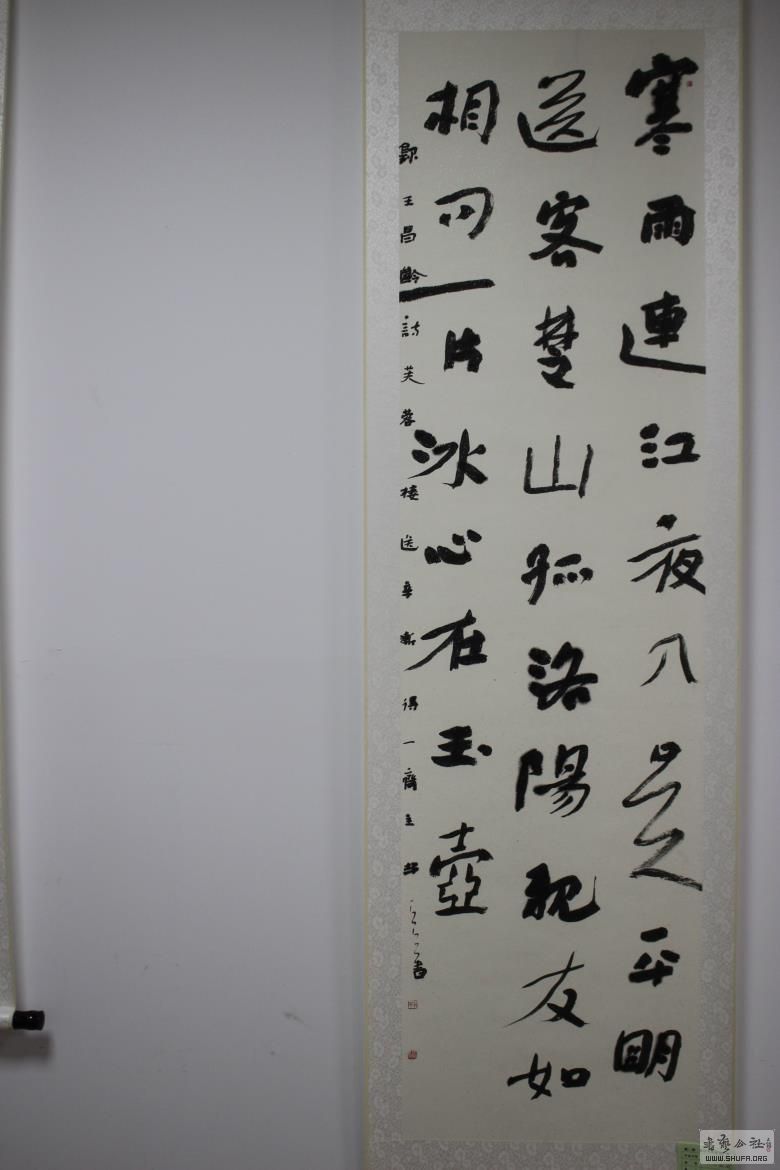 寒雨連江夜入吳平明
送客楚山孤洛陽親友如
相問一片冰心在玉壺
王昌齡詩芙蓉樓送辛漸得一齋主書
WWW.SHUFA.ORG